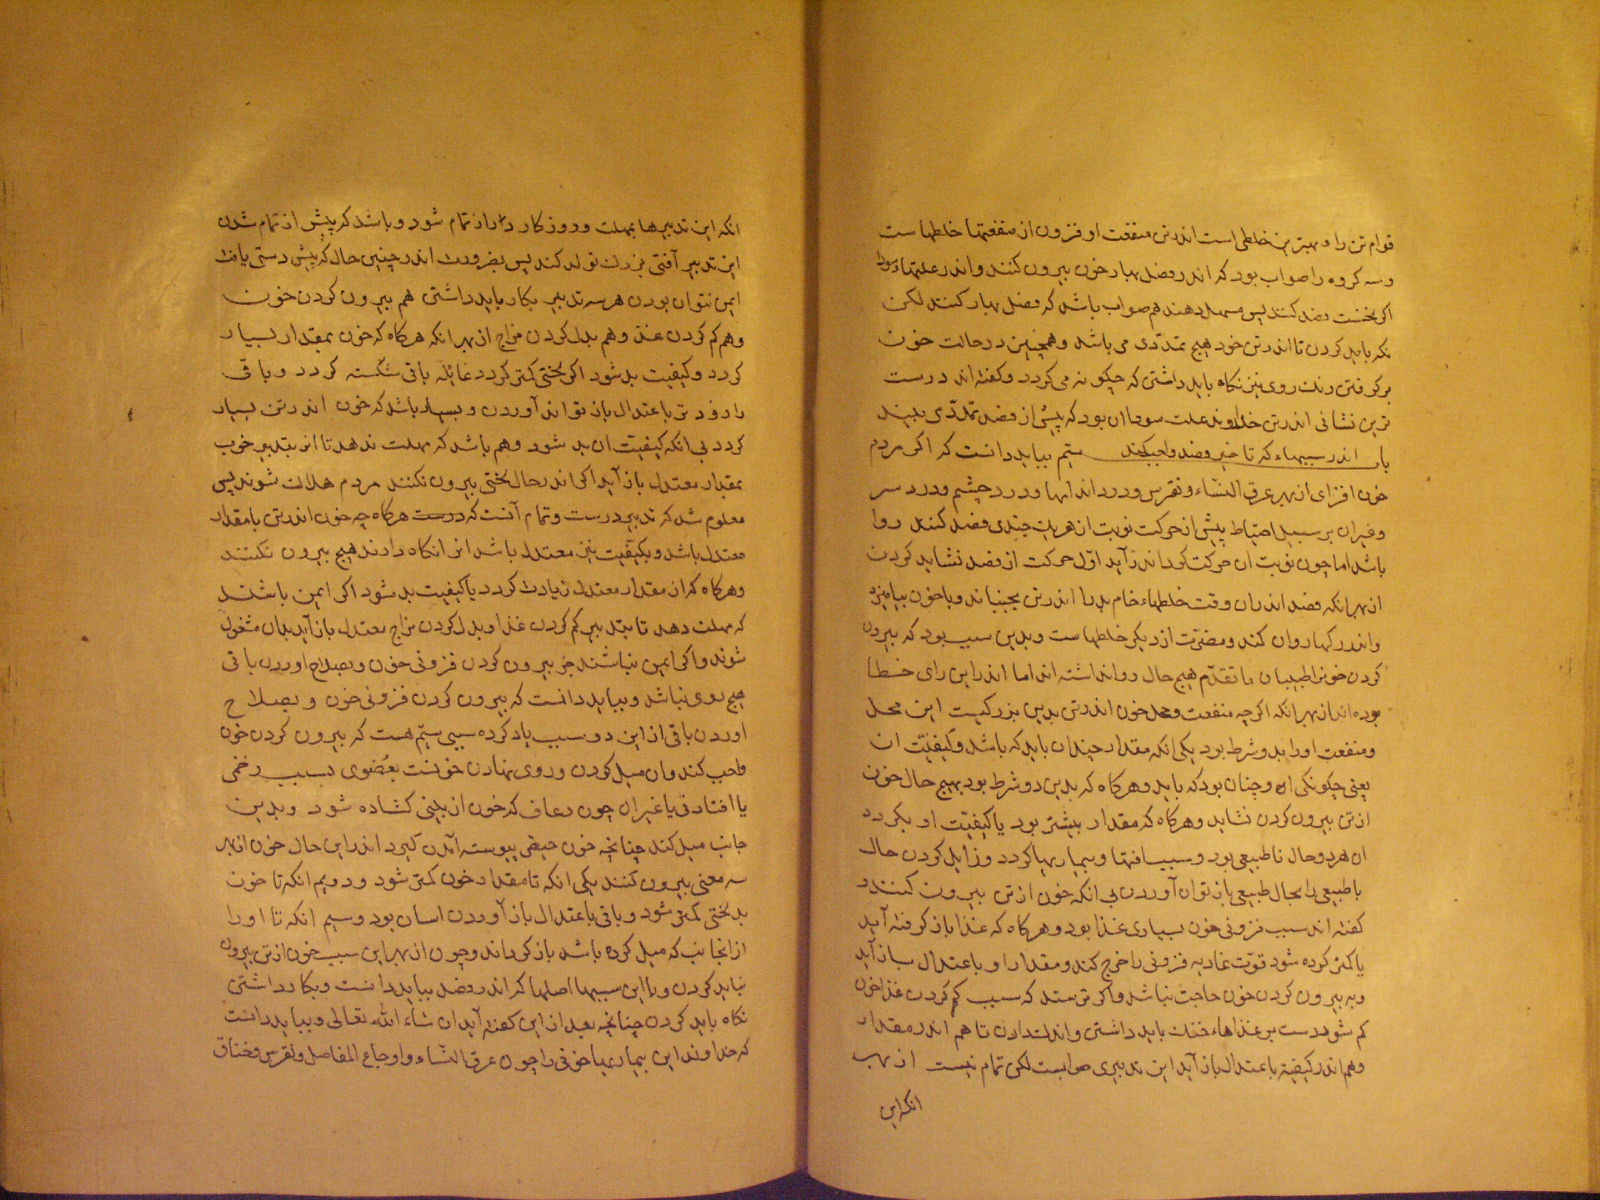 قوام تن را و بهترین خلطی است اندر تن منفعت او فزون از منفعتها خلطهاست
وسه کروه را صواب بود که اندر فصل بهار خون بیرون کنند و اندر علتهاء سودا
اکر نخست فصد کنند پس مسهل دهند هم صواب باشد که فصل بهار کنند لکن
نکه باید کردن تا اندر تن خود هیچ تمددی می باشد و همچنین در حالت خون
برکرفتن رنک روی نیز نکاه باید داشتن که چکونه می کردد و کفته اند درست
ترین نشانی اندر تن خداوند علت سودا ان بود که پیش از فصد تمددی بیند
باب اندر سببهاء که تاخیر فصد واجب کند سیم بباید دانست که اکر مردم
خون افزای از بهر عرق النساء و نقرس و درد اندامها و درد چشم و درد سر
و غیر ان بر سبیل احتیاط پیش از حرکت نوبت ان هریک چندی فصد کنند روا
باشد اما چون نوبت ان حرکت کرد اندر آید اول حرکت از فصد نشاید کردن
از بهر انکه فصد اندر ان وقت خلطهاء خام بد را اندر تن بجنباند و با خون بیامیزد
و اندر رکها روان کند و مضرت از دیکر خلطهاست و بدین سبب بود که بیرون
کردن خون را طبیبان ما تقدم هیچ حال روا نداشته اند اما اندر این رای خطا
بوده اند از بهر انکه اکرچه منفعت و محل خون اندر تن بدین بزرکیست این محل
و منفعت او را بدو شرط بود یکی انکه مقدار چندان باید که باشد و کیفیت ان
یعنی چکونکی ان چنان بود که باید و هرکاه که بدین دو شرط بود بهیچ حال خون
از تن بیرون کردن نشاید و هرکاه که مقدار بیشتر بود یا کیفیت او بکردد
ان هردو حال ناطبیعی بود و سبب افتها و بیماریها کردد و زایل کردن حال
ناطبیعی را بحال طبیعی باز توان آوردن بی انکه خون از تن بیرون کنند و
کفته اند سبب فزونی خون بسیاری غذا بود و هرکاه که غذا باز کرفته آید
یا کمتر کرده شود قوت غاذیه فزونی را خرج کند و مقدار او باعتدال باز آید
و به بیرون کردن خون حاجت نباشد و اکر ترسند که سبب کم کردن غذا خون
کم شود دست بر غذاهاء خنک باید داشتن و اندک دادن تا هم اندر مقدار
و هم اندر کیفیة باعتدال باز آید این تدبیری صوابست لکن تمام نیست از بهر
انکه این
انکه این تدبیرها بمهلت و روزکار دراز تمام شود و باشد که پیش از تمام شدن
این تدبیر آفتی بزرک تولد کند پس بضرورت اندر چنین حال که پیش دستی یافت
ایمن نتوان بودن هر سه تدبیر بکار باید داشتن هم بیرون کردن خون
و هم کم کردن غذا و هم بدل کردن مزاج از بهر انکه هرکاه که خون بمقدار بسیار
کردد و کیفیت بد شود اکر لختی کمتر کردد غائله باقی شکسته کردد و باقی
را زود تر باعتدال باز تواند آوردن و بسیار باشد که خون اندر تن بسیار
کردد بی انکه کیفیت ان بد شود و هم باشد که مهلت ندهد تا از تدبیر خوب
بمقدار معتدل باز آید اکر اندر حال لختی بیرون نکنند مردم هلاک شوند پس
معلوم شد که تدبیر درست و تمام آنست که درست هرکاه چه خون اندر تن با مقدار
معتدل باشد و بکیفیت نیز معتدل باشد انرا نکاه دارند هیچ بیرون نکنند
و هرکاه که از مقدار معتدل زیادت کردد یا کیفیت بد شود اکر ایمن باشند
که مهلت دهد تا بتدبیر کم کردن غذا و بدل کردن مزاج معتدل باز آید بدان مشغول
شوند و اکر ایمن نباشند جز بیرون کردن فزونی خون و بصلاح اوردن باقی
هیچ روی نباشد و بباید دانست که بیرون کردن فزونی خون و بصلاح
اوردن باقی از این دو سبب یاد کرده سببی سیم هست که بیرون کردن خون
واجب کند وان میل کردن و روی نهادن خونست بعضوی بسبب زخمی
یا افتادنی یا غیر ان چون رعاف که خون از بینی کشاده شود و بدین
جانب میل کند چنانچه خون حیض پیوسته آمدن کیرد اندر این حال خون از بهر
سه معنی بیرون کنند یکی انکه تا مقدار خون کمتر شود و دویم انکه تا خون
بد لختی کمتر شود و باقی باعتدال باز آوردن اسان بود و سیم انکه تا او را
از انجانب که میل کرده باشد باز کرداند و چون از بهر این سبب خون از تن بیرون
نباید کردن و با این سببها اصلها که اندر فصد بباید دانست و بکار داشتن
نکاه باید کردن چنانچه بعد از این کفته آید ان شاء الله تعالی و بباید دانست
که خداوند این بیماریها خونی را چون عرق النساء و اوجاع المفاصل و نقرس و خناق